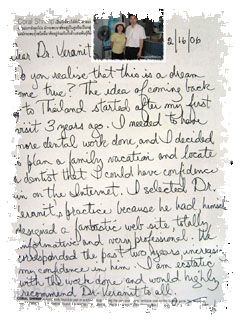 2/16/06
ear Dr. Veranit
o you realise that this is a dream
ome true? The idea of coming back
to Thailand started after my first
visit 3 years ago. I needed to have
more dental work done, and I decided
to plan a family vacation and locate
a dentist that I could have confidence
in on the Internet. I selected Dr.
Veranit's practice because he had himself
designed a fantastic web site, totally
informative and very professional. We
corresponded the past two years increasing
my confidence in him. I am ecstatic
with the work done and would highly
recommend Dr. Veranit to all.